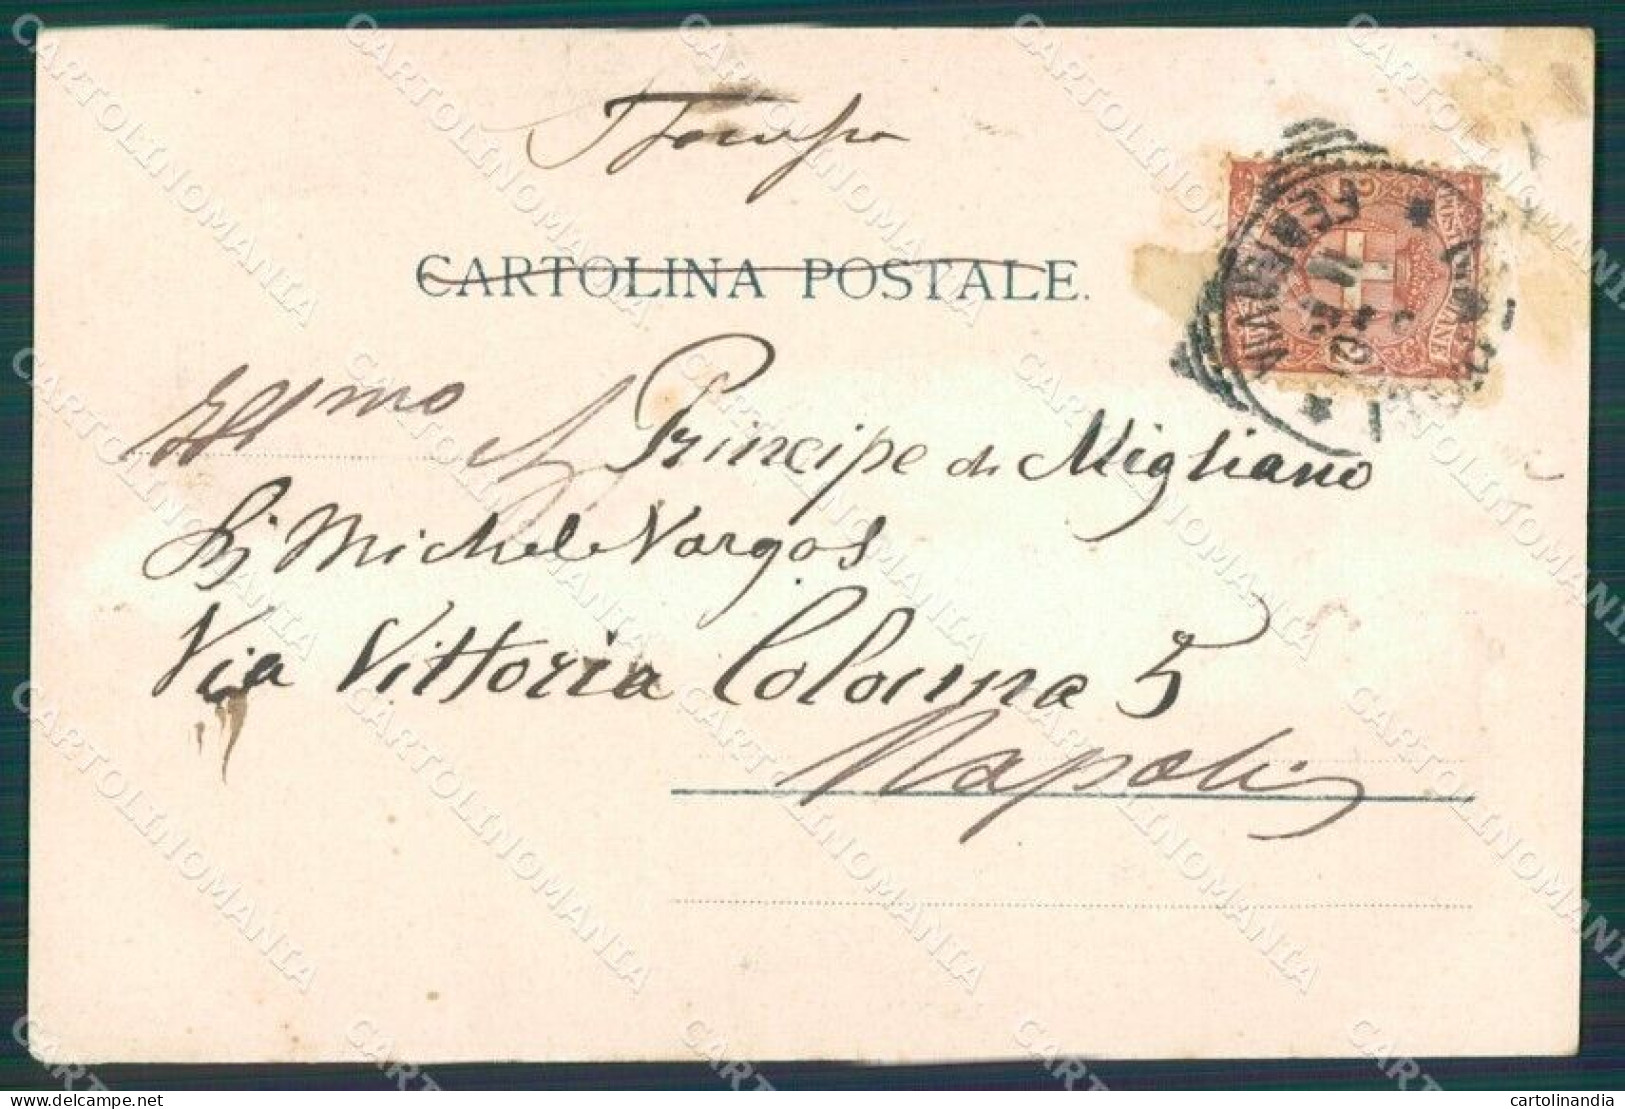 Stampa
CARTOLINA POSTALE.
Illmo
Principe di Migliano
Michele Vargas
Via Vittoria Colonna 5
Napoli
CARTOLINOMANIA
cartolinandia